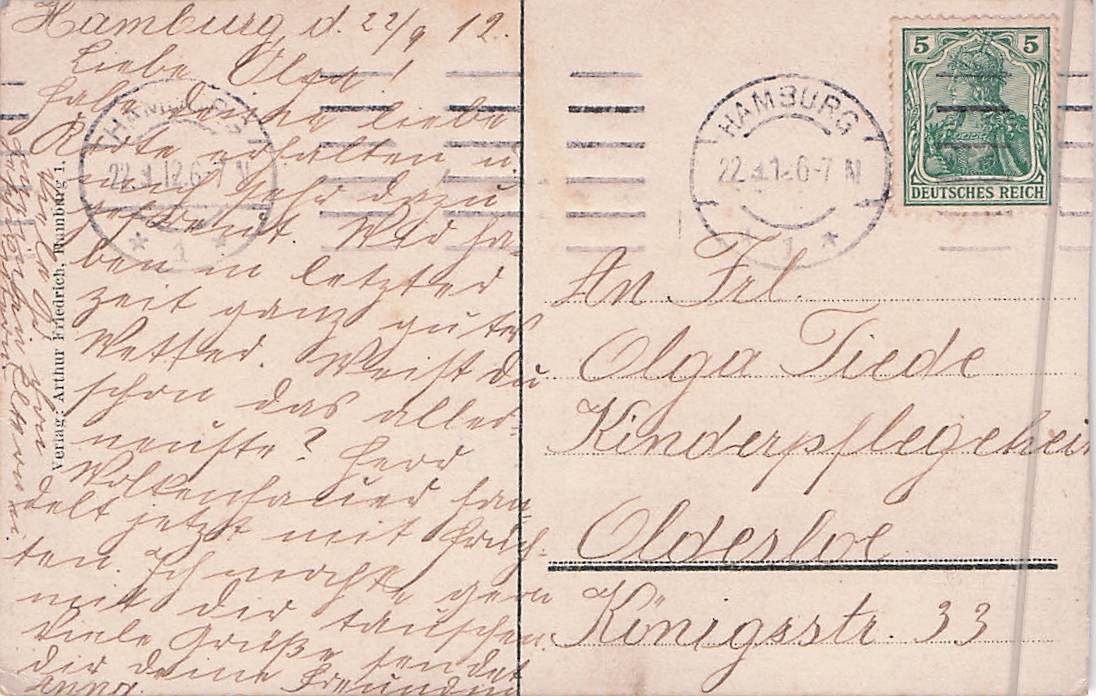 Hamburg d. 22/9 12.
Liebe Olga!
Habe deine liebe
Karte erhalten u.
mich sehr dazu
gefreut. Wir ha-
ben in letzter
Zeit ganz gutes
Wetter. Weist du
schon das aller-
neuste? Herr
Woltenhauer han-
delt jetzt mit Früch-
ten. Ich mochte gern
mit dir tauschen.
Viele Grüße sendet
dir deine Freundin
Anna.
Verlag: Arthur Friedrich, Hamburg 1.
HAMBURG
22.9.12.6-7 N
* 1 *
HAMBURG
22.9.12.6-7 N
* 1 *
5 5
DEUTSCHES REICH
An Frl.
Olga Tiede
Kinderpflegeheim
Oldesloe
Königsstr. 33